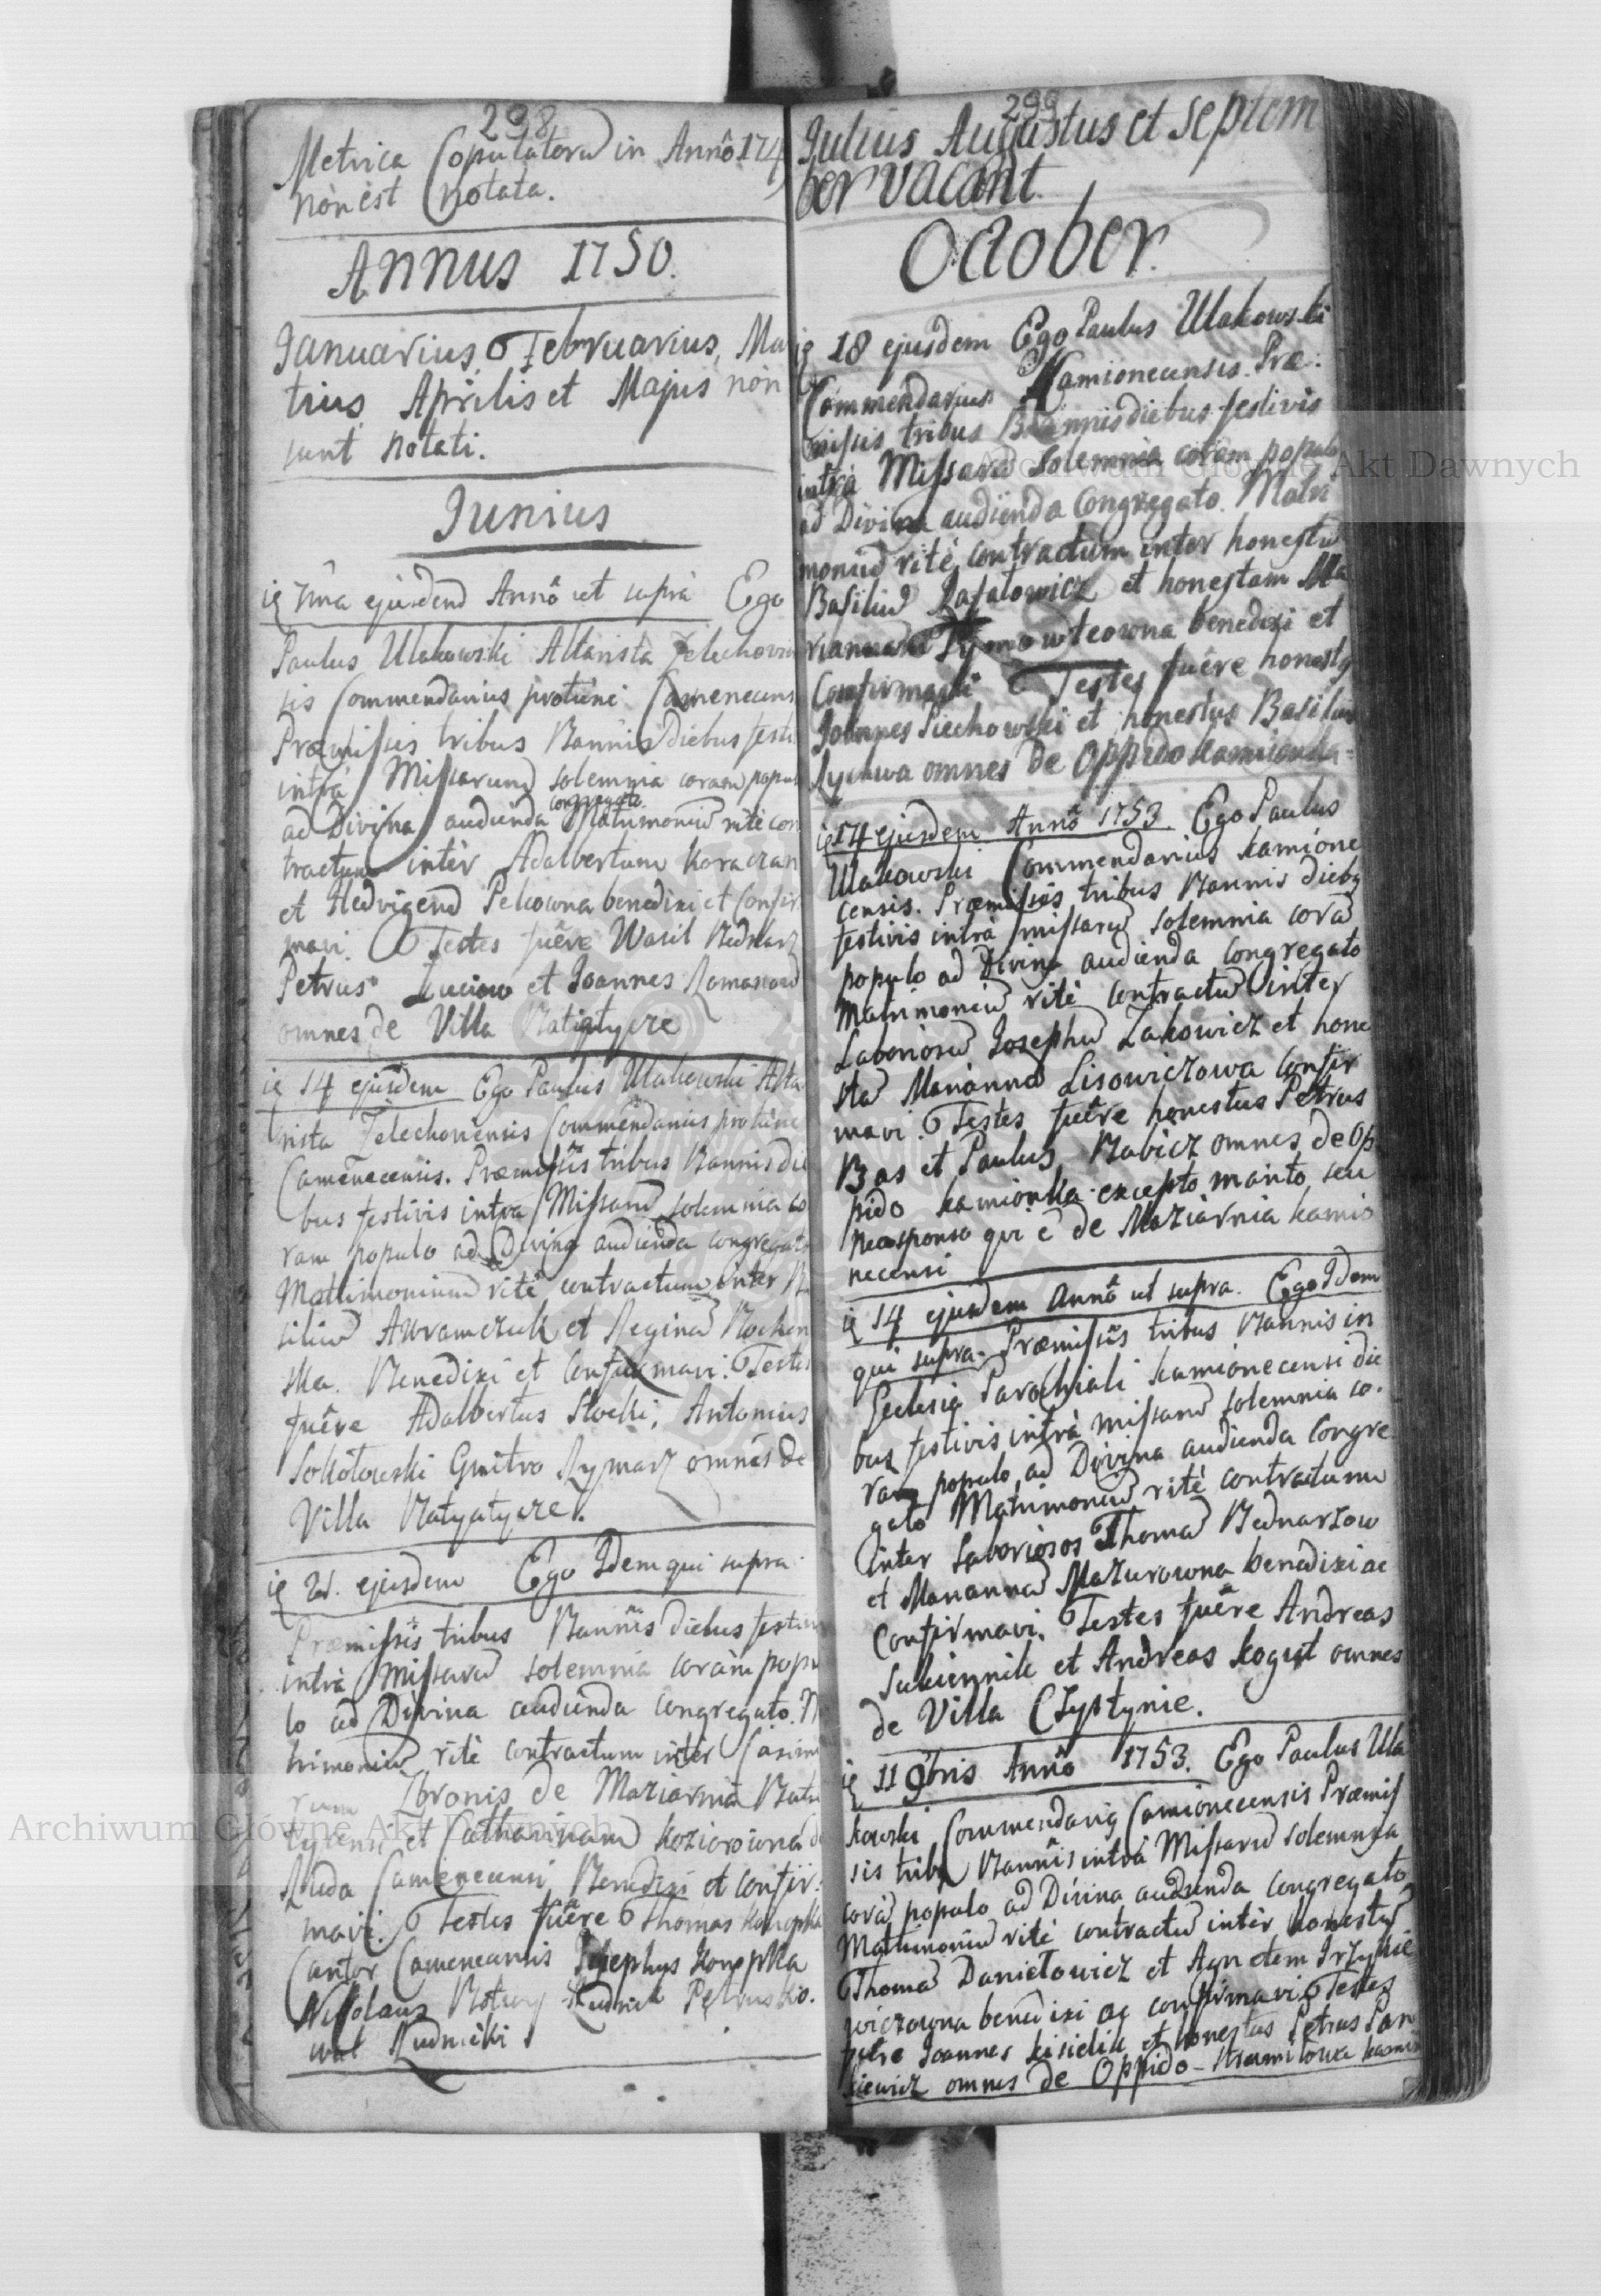 298
Metrica Copulatorū in Annô 174
non est notata.
Annus 1750.
Januarius, Februarius, Mar
tius Aprilis et Majus non
sunt notati.
Junius
ejusdem Annô ut supra Ego
Paulus Ulakowski Altarista Zelechovien
sis Commendarius protunc Camenecens
Præmissis tribus Bannis diebus festi
intrà Missarum solemnia coram popul
congregato
ad Divina audienda Matrimoniū ritè con
tractum intèr Adalbertum Karaczan
et Hedvigem Pelcowna benedixi et Confir
mavi. Testes fuêre Wasil Bednarz
Petrus Luciow et Joannes Romanow
omnes de Villa Batiatycze
14 ejusdem Ego Paulus Ulakowski Alta
rista Zelechoviensis Commendarius protunc
Camenecensis. Præmissis tribus Bannis die
bus festivis intra Missarū solemnia co
ram populo ad Divina audienda congregato
Matrimonium ritè contractum inter Ba
siliū Awramczuk et Reginā Bochen
ska. Benedixi et Confirmavi. Testes
fuêre Adalbertus Stocki, Antonius
Sokołowski Gmitro Rymarz omnes de
Villa Batyatycze.
21. ejusdem Ego Idem qui supra
Præmissis tribus Bannis diebus festiv
intrà Missarū solemnia coràm popu
lo ad Divina audienda congregato. M
trimoniū ritè contractum inter Casimi
rum Chronis de Maziarnia Batia
tycensi et Catharinam Koziorowna de
Ruda Camenecensi Benedixi et confir
mavi. Testes fuêre Thomas Konopka
Cantor Camenecensis Josephus Konopka
Nikolaus Rudnik
Rudnicki
299
Julius Augustus et Septem
ber vacant.
October.
18 ejusdem Ego Paulus Ulakowski
Commendarius Kamionecensis. Præ:
missis tribus Bannis diebus festivis
intrà Missarū Solemnia coràm populo
ad Divina audienda Congregato. Matri
moniū ritè contractum inter honestū
Basiliū Rafałowicz et honestam Ma
riannam benedixi et
Confirmavi Testes fuêre honesty
Joannes Piechowski et honestus Basilius
omnes de Oppido Kamionka
14 ejusdem Annô 1753 Ego Paulus
Ulakowski Commendarius Kamione
censis. Præmissis tribus Bannis dieby
festivis intrà missarū solemnia corā
populo ad Divina audienda Congregato
Matrimoniū ritè contractū inter
Laboriosū Josephū Zakowicz et hone
stā Mariannā Lisowiczowa Confir
mavi. Testes fuêre honestus Petrus
Bas et Paulus Babicz omnes de Op
pido Kamionka excepto marito seu
neosponso qui ê de Maziarnia Kamio
necensi
14 ejusdem Annô ut supra. Ego Idem
qui supra. Præmissis tribus Bannis in
Ecclesia Parochiali Kamionecensi die
bus festivis intrà missarū solemnia co.
ram populo ad Divina audienda Congre
gato Matrimoniū ritè contractum
inter Laboriosos Thomā Bednarzow
et Mariannā Mazurowna benedixi ac
Confirmavi. Testes fuêre Andreas
Sukiennik et Andreas Kogut omnes
de Villa Czystynie.
11 9bris Annô 1753. Ego Paulus Ula
kowski Commendariq Camionecensis Præmis
sis tribq Bannis intrà Missarū solemnia
corā populo ad Divina audienda Congregato
Matrimoniū ritè contractū intèr honestū
Thomā Daniełowicz et Agnetem Irzykie
wiczowna benedixi ac confirmavi Testes
fuêre Joannes Kisielik et honestus Petrus Pan
kiewicz omnes de Oppido Kami
Archiwum Główne Akt Dawnych
Archiwum Główne Akt Dawnych